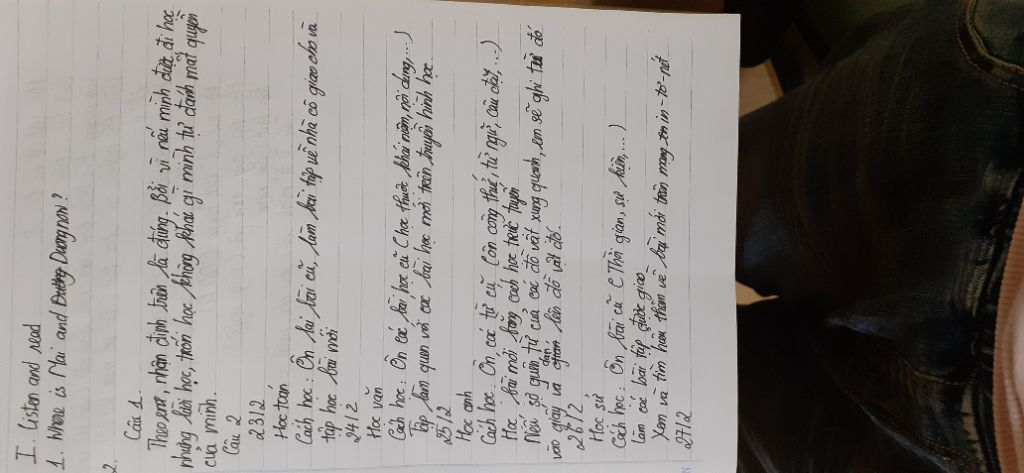 I. Listen and read
1. Where is Mai and Duong now?
2.
Câu 1.
Theo em, nhận định trên là đúng. Bởi vì nếu mình đã đi học
những lười học, trốn học, không khác gì mình tự đánh mất quyền
của mình.
Câu 2
23/2
Học toán
Cách học: Ôn lại bài cũ, làm bài tập về nhà cô giao cho và
tập học bài mới
24/2
Học văn
Cách học: Ôn các bài học cũ (học thuộc khái niệm, nội dung,...)
Tập làm quen với các bài học mới trên truyền hình học
25/2
Học anh
Cách học: Ôn các từ cũ (ôn công thức, từ ngữ, câu dậy,...)
Học bài mới bằng cách học trực tuyến
Nếu sợ quên từ của các đồ vật xung quanh, em sẽ ghi từ đó
vào giấy và dán lên đồ vật đó.
26/2
Học sử
Cách học: Ôn bài cũ (Thời gian, sự kiện,...)
Làm các bài tập được giao
Xem và tìm hiểu thêm về bài mới trên mạng in-tơ-nét
27/2